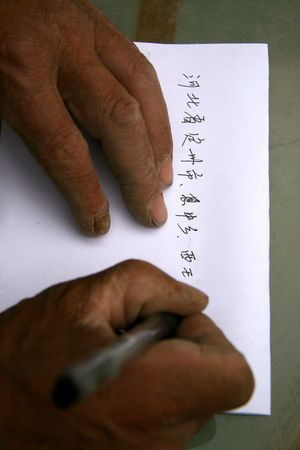 河北省定州市、息中乡、西王